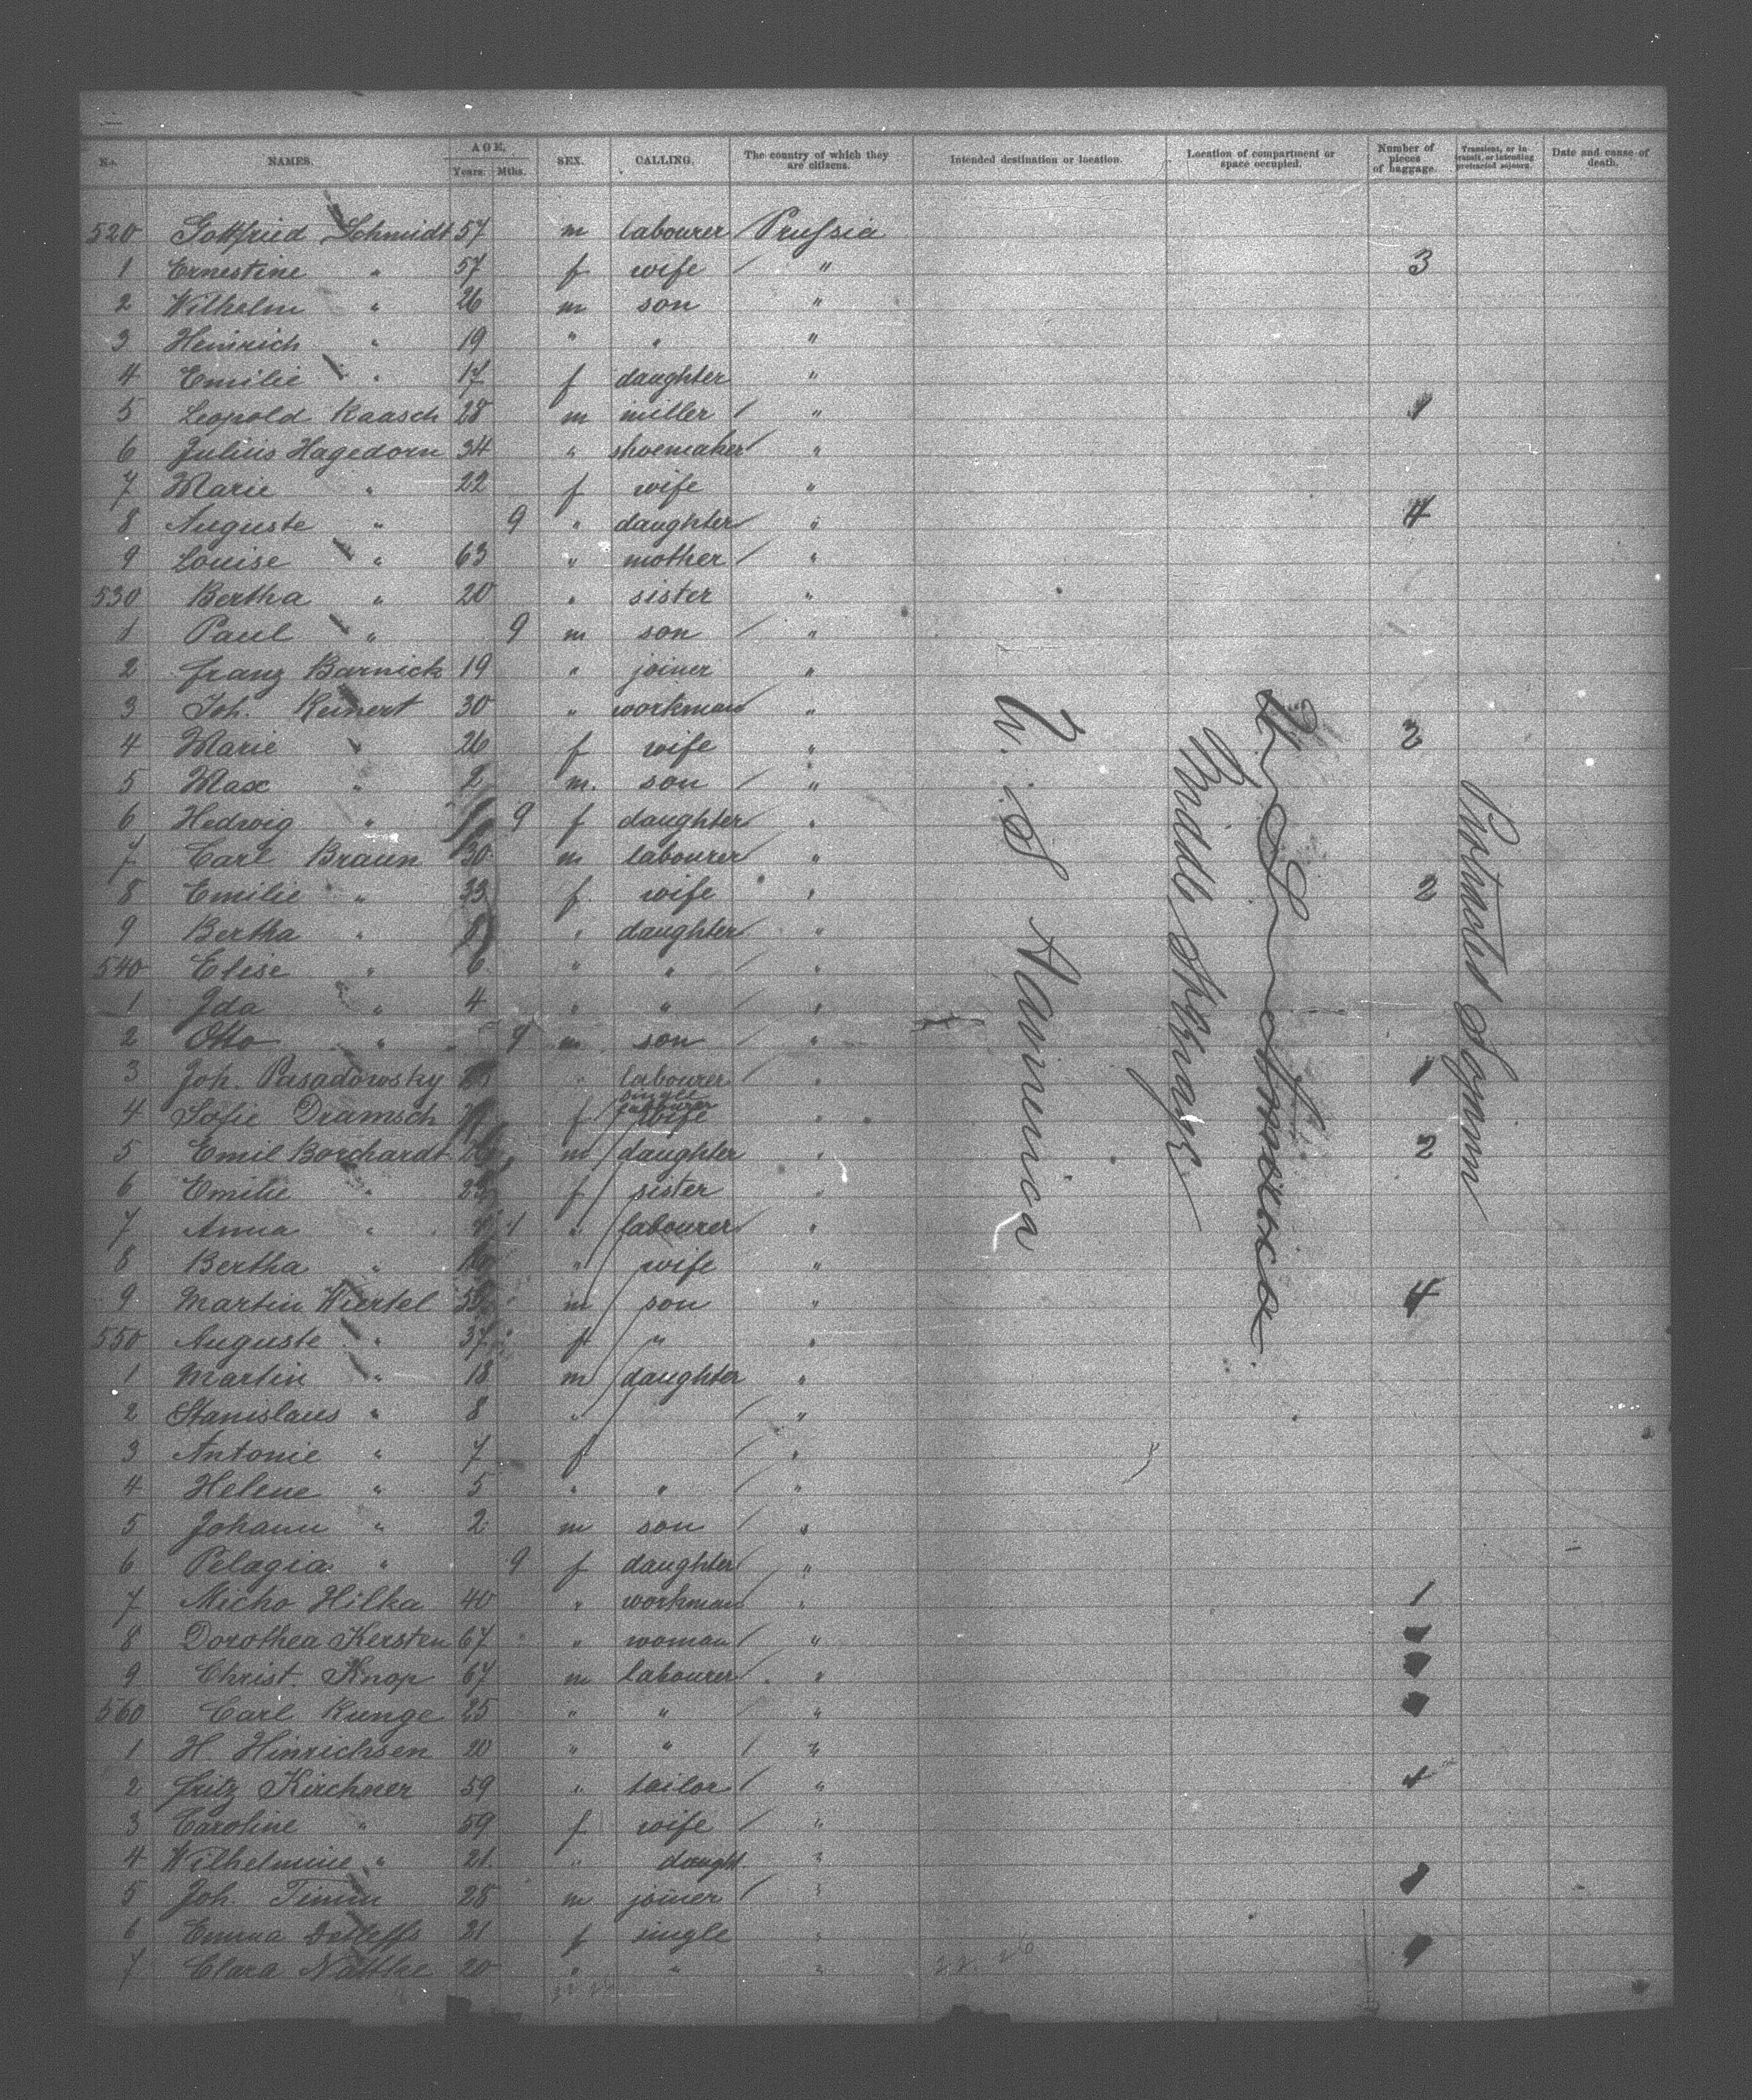 No. NAMES. AGE. Years. Mths. SEX. CALLING. The country of which they are citizens. Intended destination or location. Location of compartment or space occupied. Number of pieces of baggage. Transient, or in transit, or intending protracted sojourn. Date and cause of death.
520 Gottfried Schmidt 57 m labourer Prussia
1 Ernestine " 57 f wife " 3
2 Wilhelm " 26 m son "
3 Heinrich " 19 " " "
4 Emilie " 17 f daughter "
5 Leopold Raasch 28 m miller " 1
6 Julius Hagedorn 34 " shoemaker "
7 Marie " 22 f wife "
8 Auguste " 9 " daughter " 4
9 Louise " 63 " mother "
530 Bertha " 20 " sister "
1 Paul " 9 m son "
2 Franz Barnick 19 " joiner "
3 Joh. Reinert 30 " workman "
4 Marie " 26 f wife " 3
5 Max " 2 m. son "
6 Hedwig " 9 f daughter "
7 Carl Braun 30 m labourer "
8 Emilie " 33 f wife " 2
9 Bertha " " daughter "
540 Elise " 6 " " "
1 Ida " 4 " " "
2 Otto " 9 m son "
3 Joh. Pasadowsky " labourer " 1
4 Sofie Dramsch f single labourer wife "
5 Emil Borchardt m daughter " 2
6 Emilie " f sister "
7 Anna " " labourer "
8 Bertha " " wife "
9 Martin Wiertel m son " 4
550 Auguste " 37 f " "
1 Martin " 18 m daughter "
2 Stanislaus " 8 " "
3 Antonie " 7 f "
4 Helene " 5 " " "
5 Johann " 2 m son "
6 Pelagia " 9 f daughter "
7 Micho Hilka 40 " workman " 1
8 Dorothea Kersten 67 " woman "
9 Christ. Knop 67 m labourer "
560 Carl Runge 25 " " "
1 H. Hinrichsen 20 " " "
2 Fritz Kirchner 59 " tailor " 4
3 Caroline " 59 f wife "
4 Wilhelmine " 21 " daught. "
5 Joh. Timm 28 m joiner " 1
6 Emma Detleffs 21 f single "
7 Clara Natthe 20 " " " 1
U. S America
Middle Steerage
Protracted Sojourn